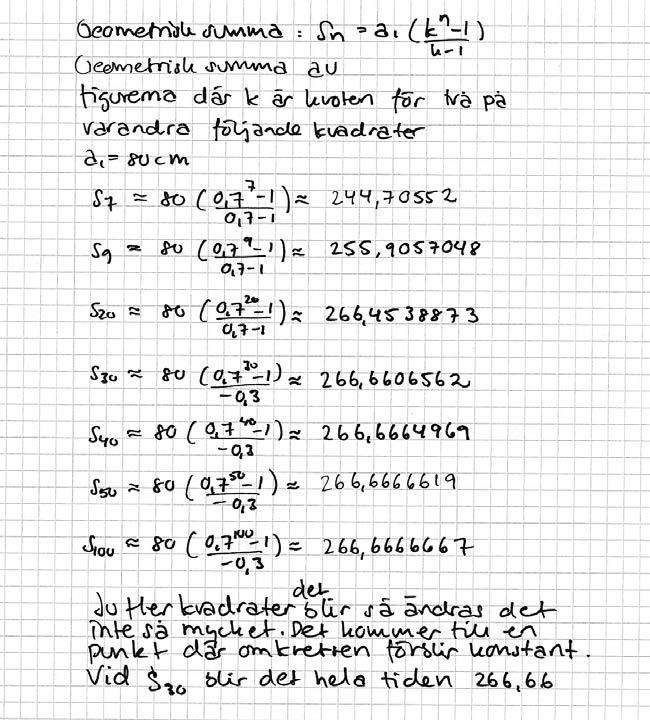 Geometrisk summa : Sn = a₁ (kⁿ-1 / k-1)
Geometrisk summa av
figurerna där k är kvoten för två på
varandra följande kvadrater
a₁ = 80 cm
S7 ≈ 80 (0,7⁷-1 / 0,7-1) ≈ 244,70552
S9 ≈ 80 (0,7⁹-1 / 0,7-1) ≈ 255,9057048
S20 ≈ 80 (0,7²⁰-1 / 0,7-1) ≈ 266,4538873
S30 ≈ 80 (0,7³⁰-1 / -0,3) ≈ 266,6606562
S40 ≈ 80 (0,7⁴⁰-1 / -0,3) ≈ 266,6664969
S50 ≈ 80 (0,7⁵⁰-1 / -0,3) ≈ 266,6666619
S100 ≈ 80 (0,7¹⁰⁰-1 / -0,3) ≈ 266,6666667
Ju fler kvadrater det blir så ändras det
inte så mycket. Det kommer till en
punkt där omkretsen förblir konstant.
Vid S30 blir det hela tiden 266,66